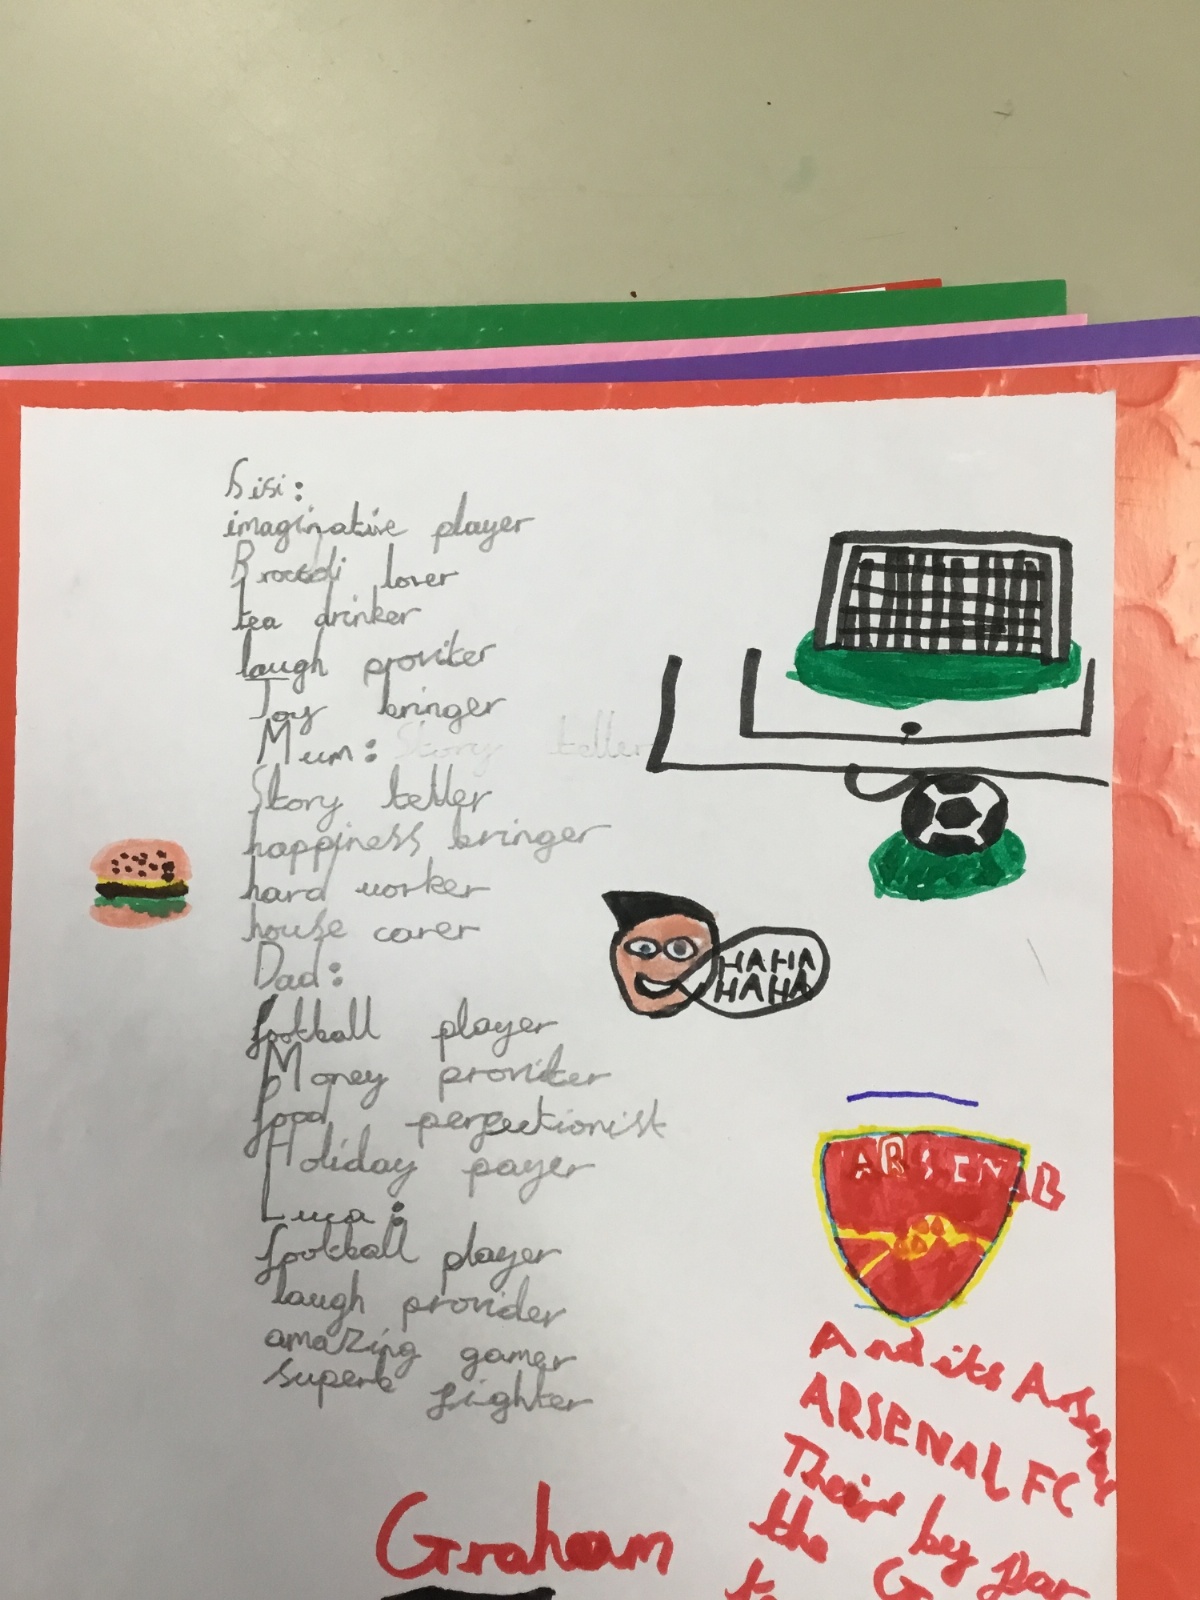 Sisi:
imaginative player
Broccoli lover
tea drinker
laugh proviter
Joy bringer
Mum: Story teller
Story teller
happiness bringer
hard worker
house carer
Dad:
football player
Money proviter
food perfectionist
Holiday payer
Luca:
football player
laugh provider
amazing gamer
superb fighter
Graham
HAHA
HAHA
ARSENAL
And its Arsenal
ARSENAL FC
Their by far
the